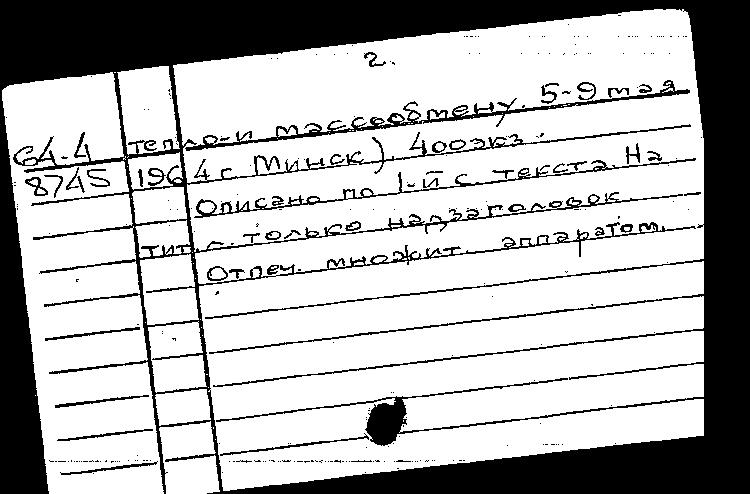 2.
64-4 тепло-и массообмену. 5-9 мая
8745 1964 г Минск). 400экз.
Описано по 1-й с. текста. На
тит. л. только надзаголовок
Отпеч. множит. аппаратом.